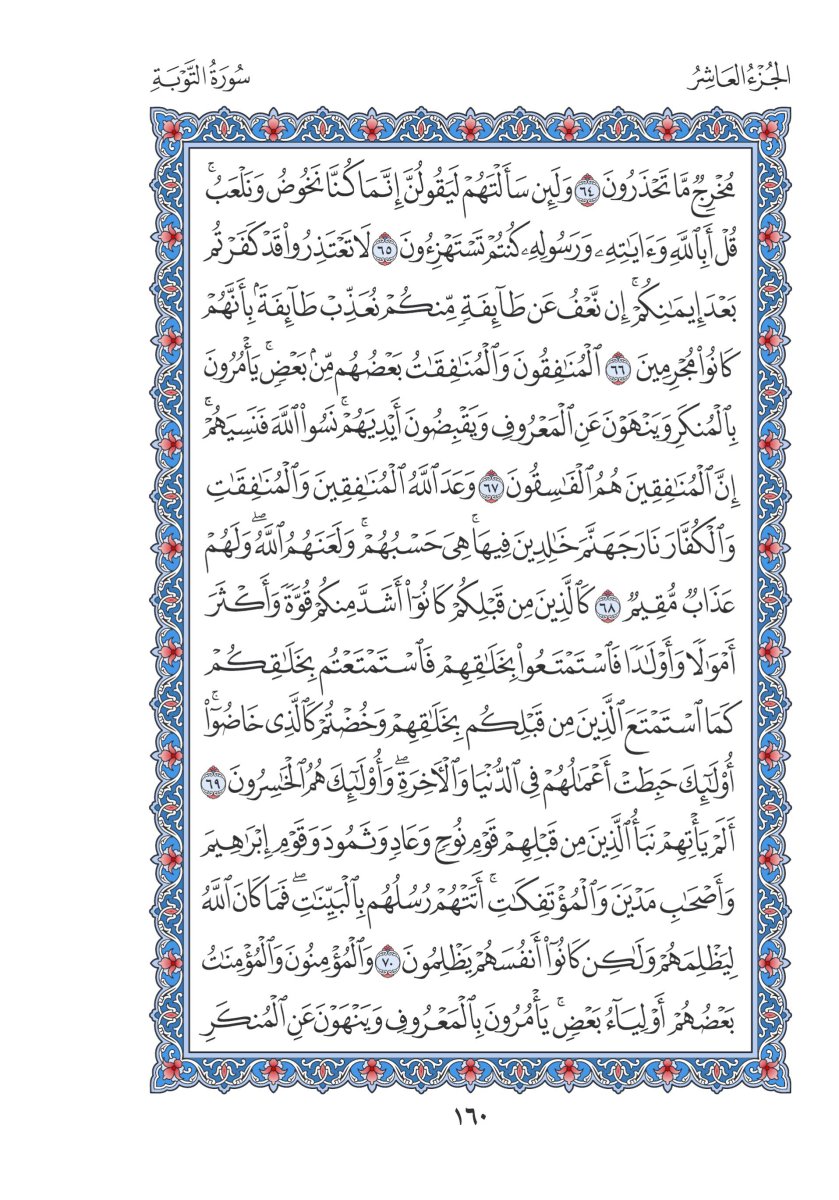 الجُزْءُ العَاشِرُ
سُورَةُ التَّوْبَةِ
مُخْرِجٌ مَّا تَحْذَرُونَ ٦٤ وَلَئِن سَأَلْتَهُمْ لَيَقُولُنَّ إِنَّمَا كُنَّا نَخُوضُ وَنَلْعَبُۚ
قُلْ أَبِٱللَّهِ وَءَايَٰتِهِۦ وَرَسُولِهِۦ كُنتُمْ تَسْتَهْزِءُونَ ٦٥ لَا تَعْتَذِرُوا۟ قَدْ كَفَرْتُم
بَعْدَ إِيمَٰنِكُمْۚ إِن نَّعْفُ عَن طَآئِفَةٍ مِّنكُمْ نُعَذِّبْ طَآئِفَةَۢ بِأَنَّهُمْ
كَانُوا۟ مُجْرِمِينَ ٦٦ ٱلْمُنَٰفِقُونَ وَٱلْمُنَٰفِقَٰتُ بَعْضُهُم مِّنۢ بَعْضٍۚ يَأْمُرُونَ
بِٱلْمُنكَرِ وَيَنْهَوْنَ عَنِ ٱلْمَعْرُوفِ وَيَقْبِضُونَ أَيْدِيَهُمْۚ نَسُوا۟ ٱللَّهَ فَنَسِيَهُمْۚ
إِنَّ ٱلْمُنَٰفِقِينَ هُمُ ٱلْفَٰسِقُونَ ٦٧ وَعَدَ ٱللَّهُ ٱلْمُنَٰفِقِينَ وَٱلْمُنَٰفِقَٰتِ
وَٱلْكُفَّارَ نَارَ جَهَنَّمَ خَٰلِدِينَ فِيهَاۚ هِىَ حَسْبُهُمْۚ وَلَعَنَهُمُ ٱللَّهُۖ وَلَهُمْ
عَذَابٌ مُّقِيمٌ ٦٨ كَٱلَّذِينَ مِن قَبْلِكُمْ كَانُوٓا۟ أَشَدَّ مِنكُمْ قُوَّةً وَأَكْثَرَ
أَمْوَٰلًا وَأَوْلَٰدًا فَٱسْتَمْتَعُوا۟ بِخَلَٰقِهِمْ فَٱسْتَمْتَعْتُم بِخَلَٰقِكُمْ
كَمَا ٱسْتَمْتَعَ ٱلَّذِينَ مِن قَبْلِكُم بِخَلَٰقِهِمْ وَخُضْتُمْ كَٱلَّذِى خَاضُوٓا۟ۚ
أُو۟لَٰٓئِكَ حَبِطَتْ أَعْمَٰلُهُمْ فِى ٱلدُّنْيَا وَٱلْءَاخِرَةِۖ وَأُو۟لَٰٓئِكَ هُمُ ٱلْخَٰسِرُونَ ٦٩
أَلَمْ يَأْتِهِمْ نَبَأُ ٱلَّذِينَ مِن قَبْلِهِمْ قَوْمِ نُوحٍ وَعَادٍ وَثَمُودَ وَقَوْمِ إِبْرَٰهِيمَ
وَأَصْحَٰبِ مَدْيَنَ وَٱلْمُؤْتَفِكَٰتِۚ أَتَتْهُمْ رُسُلُهُم بِٱلْبَيِّنَٰتِۖ فَمَا كَانَ ٱللَّهُ
لِيَظْلِمَهُمْ وَلَٰكِن كَانُوٓا۟ أَنفُسَهُمْ يَظْلِمُونَ ٧٠ وَٱلْمُؤْمِنُونَ وَٱلْمُؤْمِنَٰتُ
بَعْضُهُمْ أَوْلِيَآءُ بَعْضٍۚ يَأْمُرُونَ بِٱلْمَعْرُوفِ وَيَنْهَوْنَ عَنِ ٱلْمُنكَرِ
١٦٠